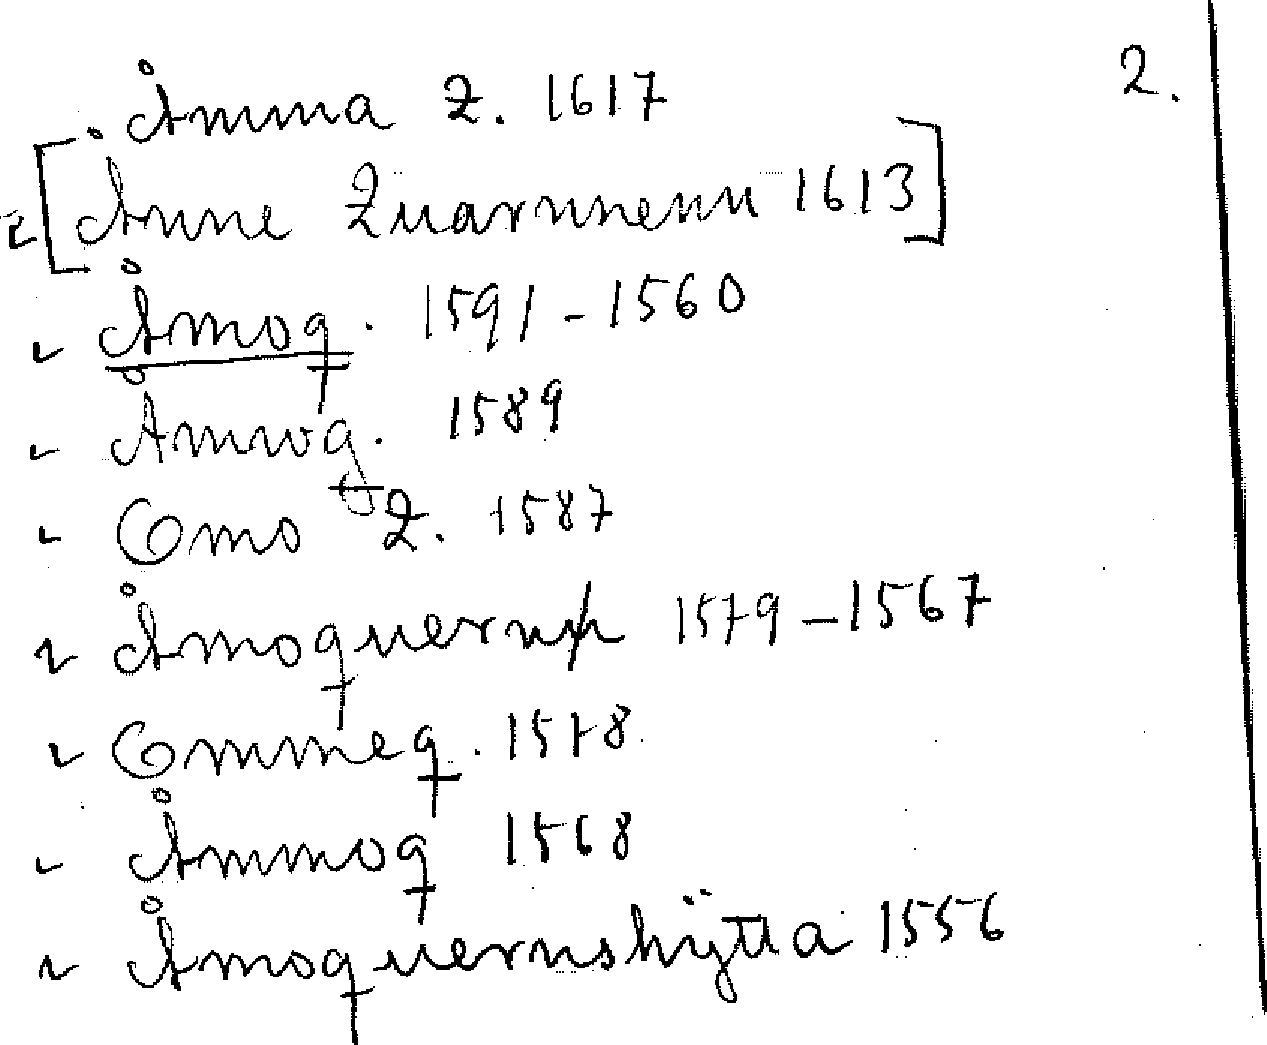 2.
Åmma Q. 1617
[Åmne Quarnnenn 1613]
Åmoq. 1591-1560
Åmwq. 1589
Omo Q. 1587
Åmoquernn 1579-1567
Ommeq. 1578
Åmmoq 1568
Åmoquernshÿtta 1556